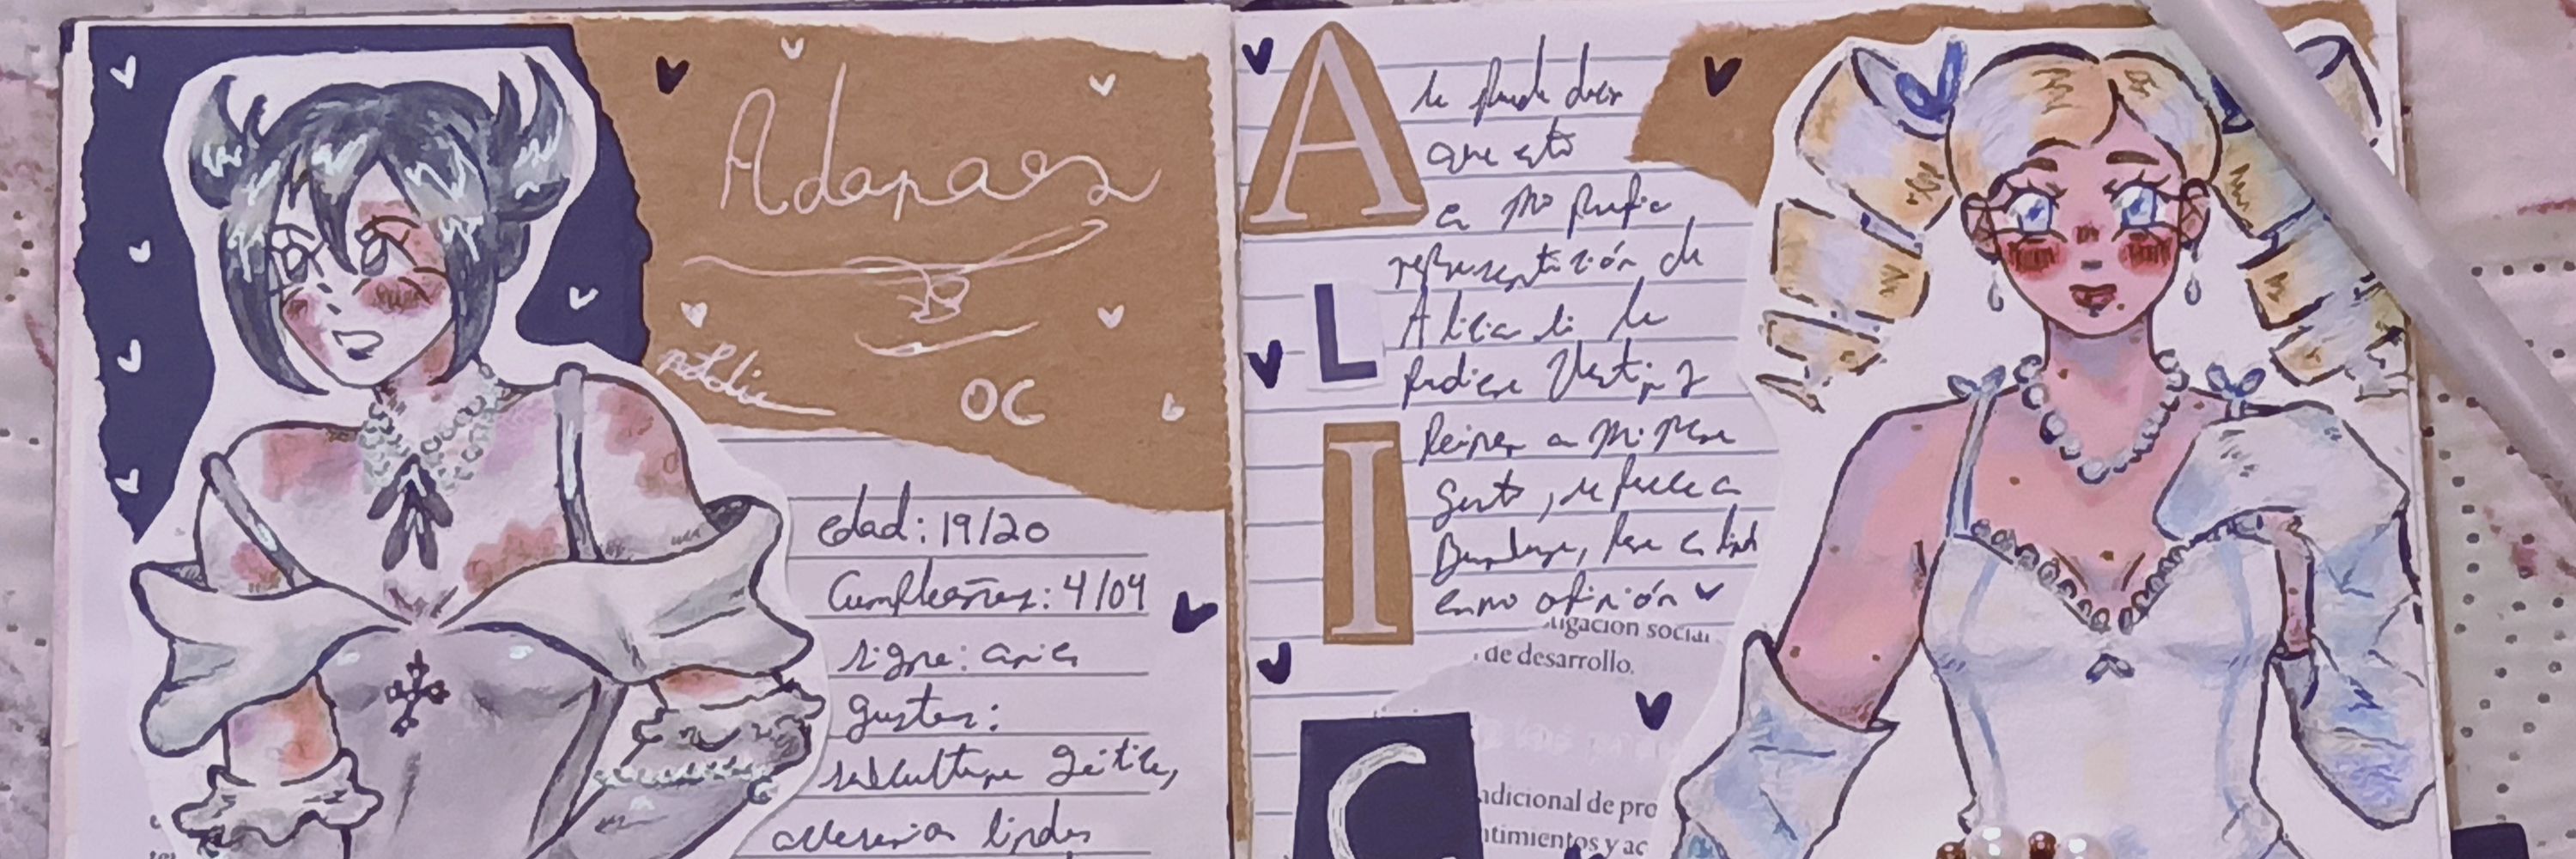 Adanaes
OC
edad: 19/20
Cumpleaños: 4/04
signo: aries
gustos:
subcultura gótica,
accesorios lindos
A
L
I
C
se puede decir
que esto
es mi propia
representación de
Alicia si la
pudiese Vestir y
Peinar a mi
gusto, se parece a
pero es
opinión
igacion social
de desarrollo.
adicional de pro
ntimientos y ac